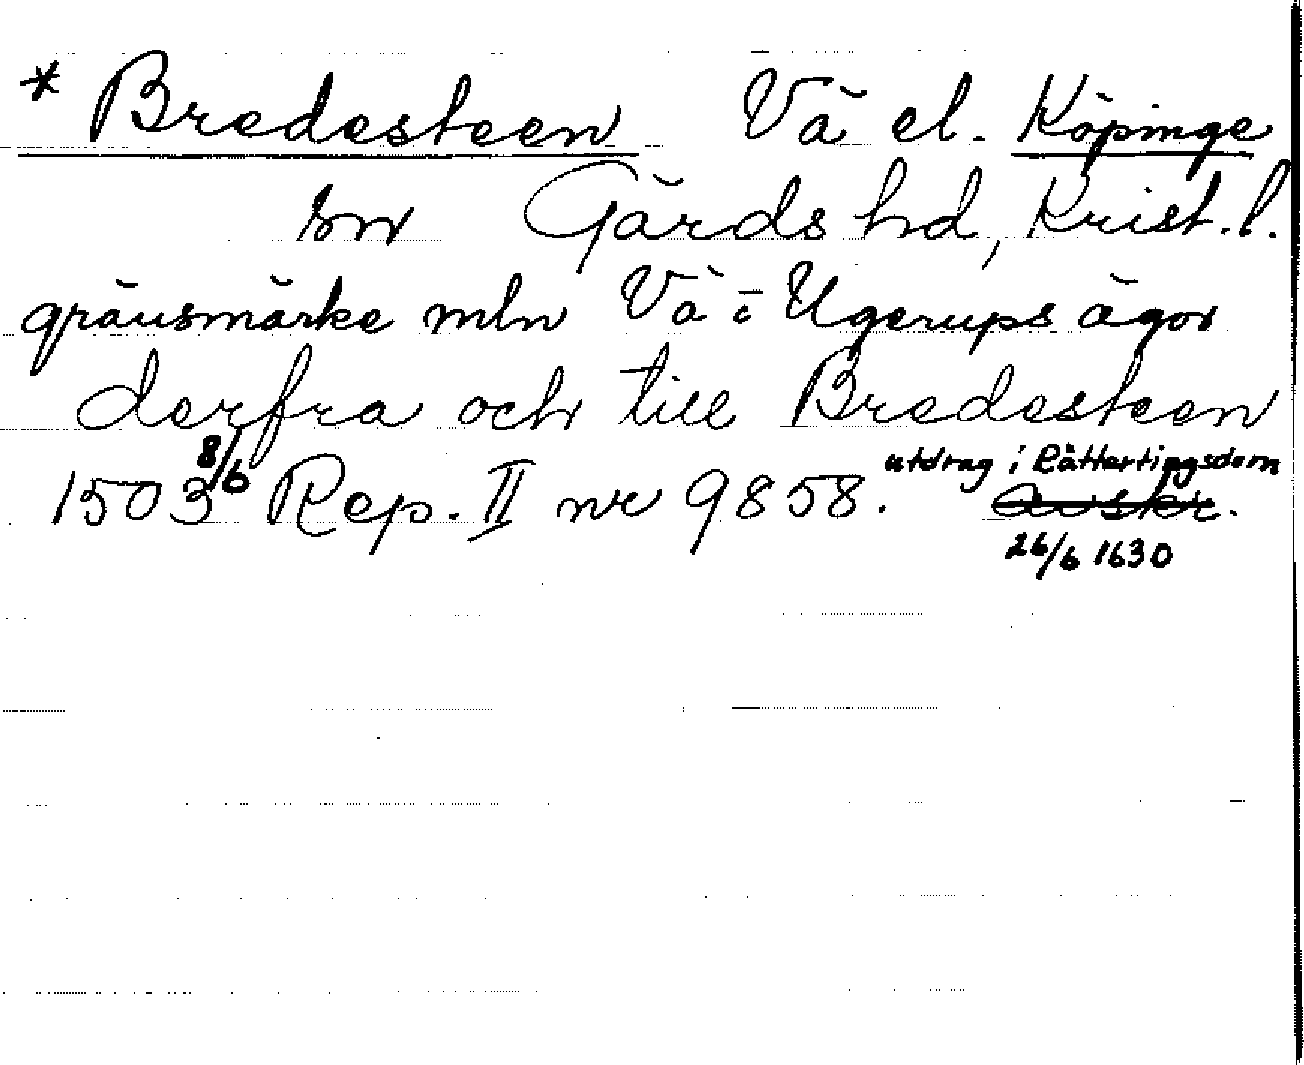 * Bredesteen Vä el. Köpinge
snr Gärds hd, Krist. l.
gränsmärke mln Vä o Ugerups ägor
derfra och till Bredesteen
1503 8/6 Rep. II nr 9858. utdrag i Råttertingsdom
avskr.
26/6 1630